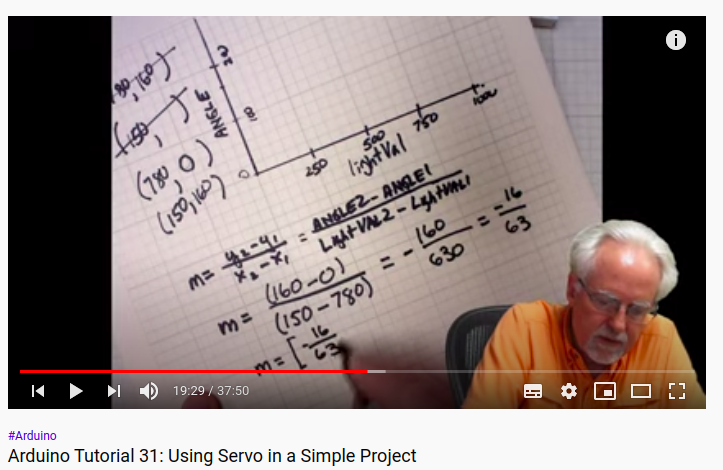 80, 160)
(150, )
(780, 0)
(150, 160)
ANGLE
100
0
250
500
750
1000
lightVal
m = y2-y1 / x2-x1 = ANGLE2 - ANGLE1 / LightVAL2 - LightVAL1
m = (160-0) / (150-780) = - 160 / 630 = -16 / 63
m = [-16 / 63
19:29 / 37:50
#Arduino
Arduino Tutorial 31: Using Servo in a Simple Project